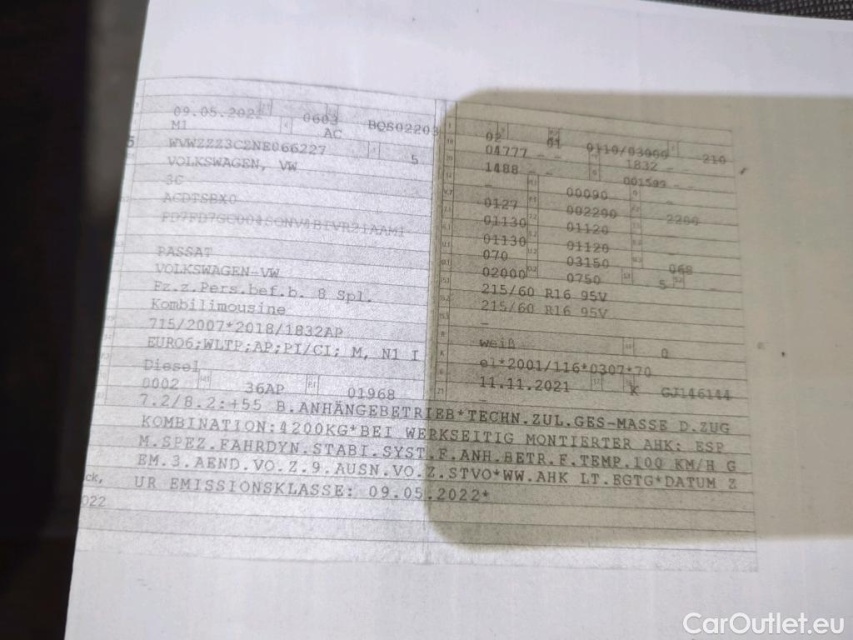 09.05.2022 0603 BQS02203
MI AC
WVWZZZ3CZNE066227 5
VOLKSWAGEN, VW
3C
ACDTSBX0
PASSAT
VOLKSWAGEN-VW
Fz.z.Pers.bef.b. 8 Spl.
Kombilimousine
715/2007*2018/1832AP
EURO6;WLTP;AP;PI/CI; M, N1 I
Diesel
0002 36AP 01968
02 01 0110/03060 210
04777 1832
1488 001599
00090
0127 002200 2200
01130 01120
01130 01120
070 03150 068
02000 0750 5
215/60 R16 95V
215/60 R16 95V
weiß 0
e1*2001/116*0307*70
11.11.2021 K GJ146144
7.2/8.2:+55 B.ANHÄNGEBETRIEB*TECHN.ZUL.GES-MASSE D.ZUG
KOMBINATION:4200KG*BEI WERKSEITIG MONTIERTER AHK: ESP
M.SPEZ.FAHRDYN.STABI.SYST.F.ANH.BETR.F.TEMP.100 KM/H G
EM.3.AEND.VO.Z.9.AUSN.VO.Z.STVO*WW.AHK LT.EGTG*DATUM Z
UR EMISSIONSKLASSE: 09.05.2022*
ck,
022
CarOutlet.eu